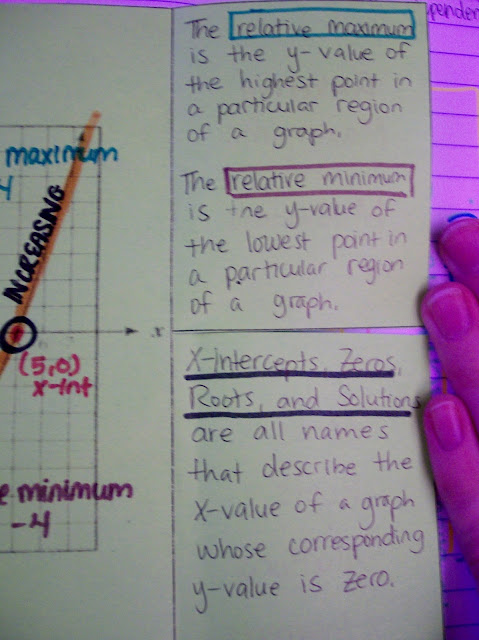 The relative maximum
is the y-value of
the highest point in
a particular region
of a graph.
The relative minimum
is the y-value of
the lowest point in
a particular region
of a graph.
X-Intercepts, Zeros,
Roots, and Solutions
are all names
that describe the
x-value of a graph
whose corresponding
y-value is zero.
maximum
INCREASING
x
(5,0)
x-int
minimum
-4